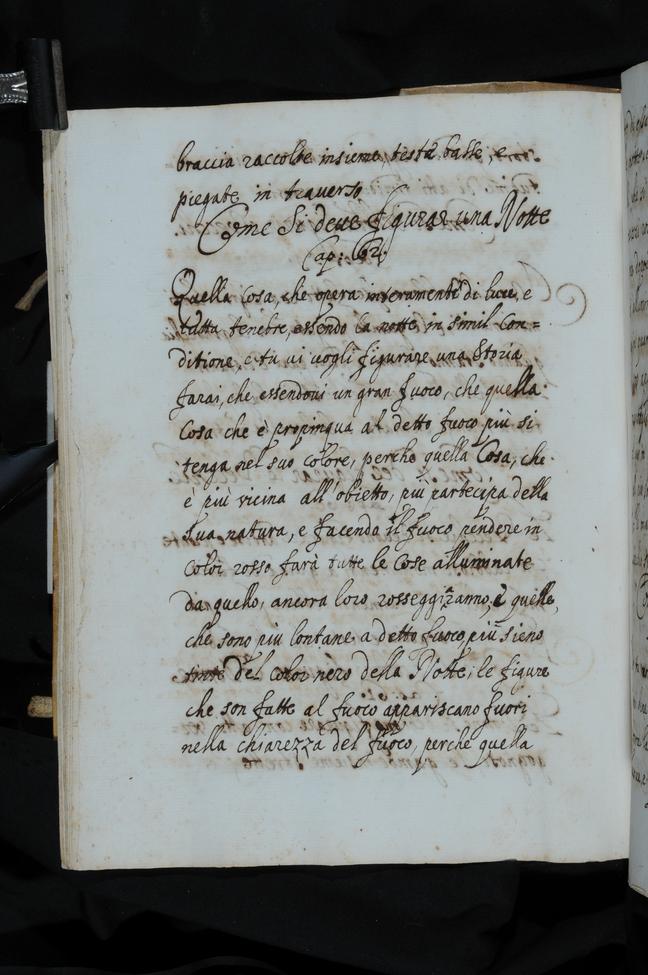 braccia raccolte insieme, testa basse, e
piegate in traverso,
Come si deue figurar una Notte
Cap: 62.
Quella Cosa, che opera interamente di luce, e
tutta tenebre, essendo la notte in simil Con=
ditione, e tu ui uogli figurare una Storia
farai, che essendoui un gran fuoco, che quella
Cosa che è propinqua al detto fuoco più si
tenga nel suo colore, perche quella Cosa, che
è più vicina all'obietto, più partecipa della
sua natura, e facendo il fuoco pendere in
Color rosso farà tutte le Cose alluminate
da quello, ancora loro rosseggiranno, è quelle,
che sono più lontane a detto fuoco più sieno
tinte del color nero della Notte; le figure
che son fatte al fuoco appariscano fuori
nella chiarezza del fuoco, perche quella